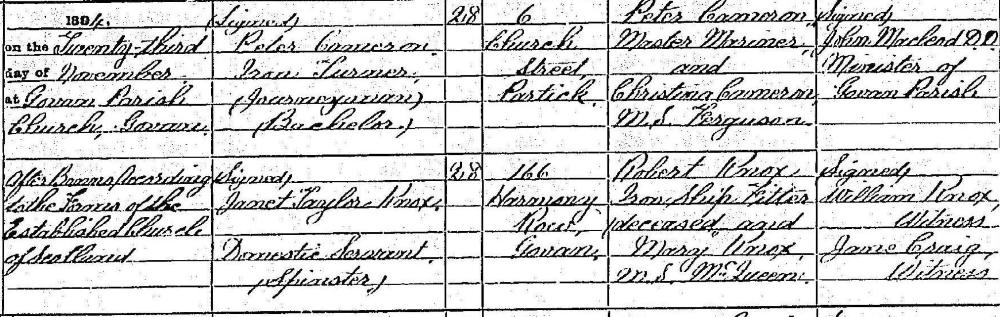 1894.
on the Twenty-third
day of November
at Govan Parish
Church, Govan
(Signed)
Peter Cameron
Iron Turner
(Journeyman)
(Bachelor)
28
6
Church
Street,
Partick.
Peter Cameron,
Master Mariner
and
Christina Cameron
M.S. Ferguson.
(Signed)
John Macleod D.D.
Minister of
Govan Parish
After Banns According
to the Forms of the
Established Church
of Scotland
(Signed)
Janet Taylor Knox.
Domestic Servant.
(Spinster)
28
166
Harmony
Row,
Govan.
Robert Knox,
Iron Ship Fitter
deceased and
Mary Knox.
M.S. McQueen.
(Signed)
William Knox,
Witness
Jane Craig,
Witness